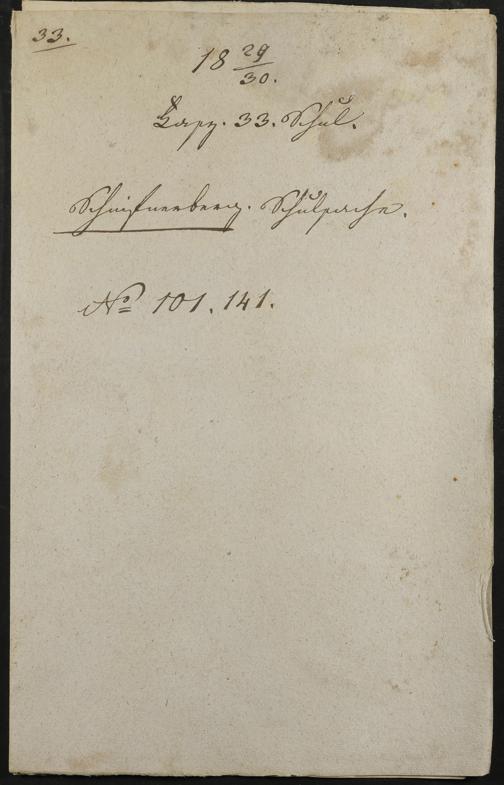 33.
18 29/30.
33. Schul.
Schnifnerberg. Schulsache.
No 101. 141.